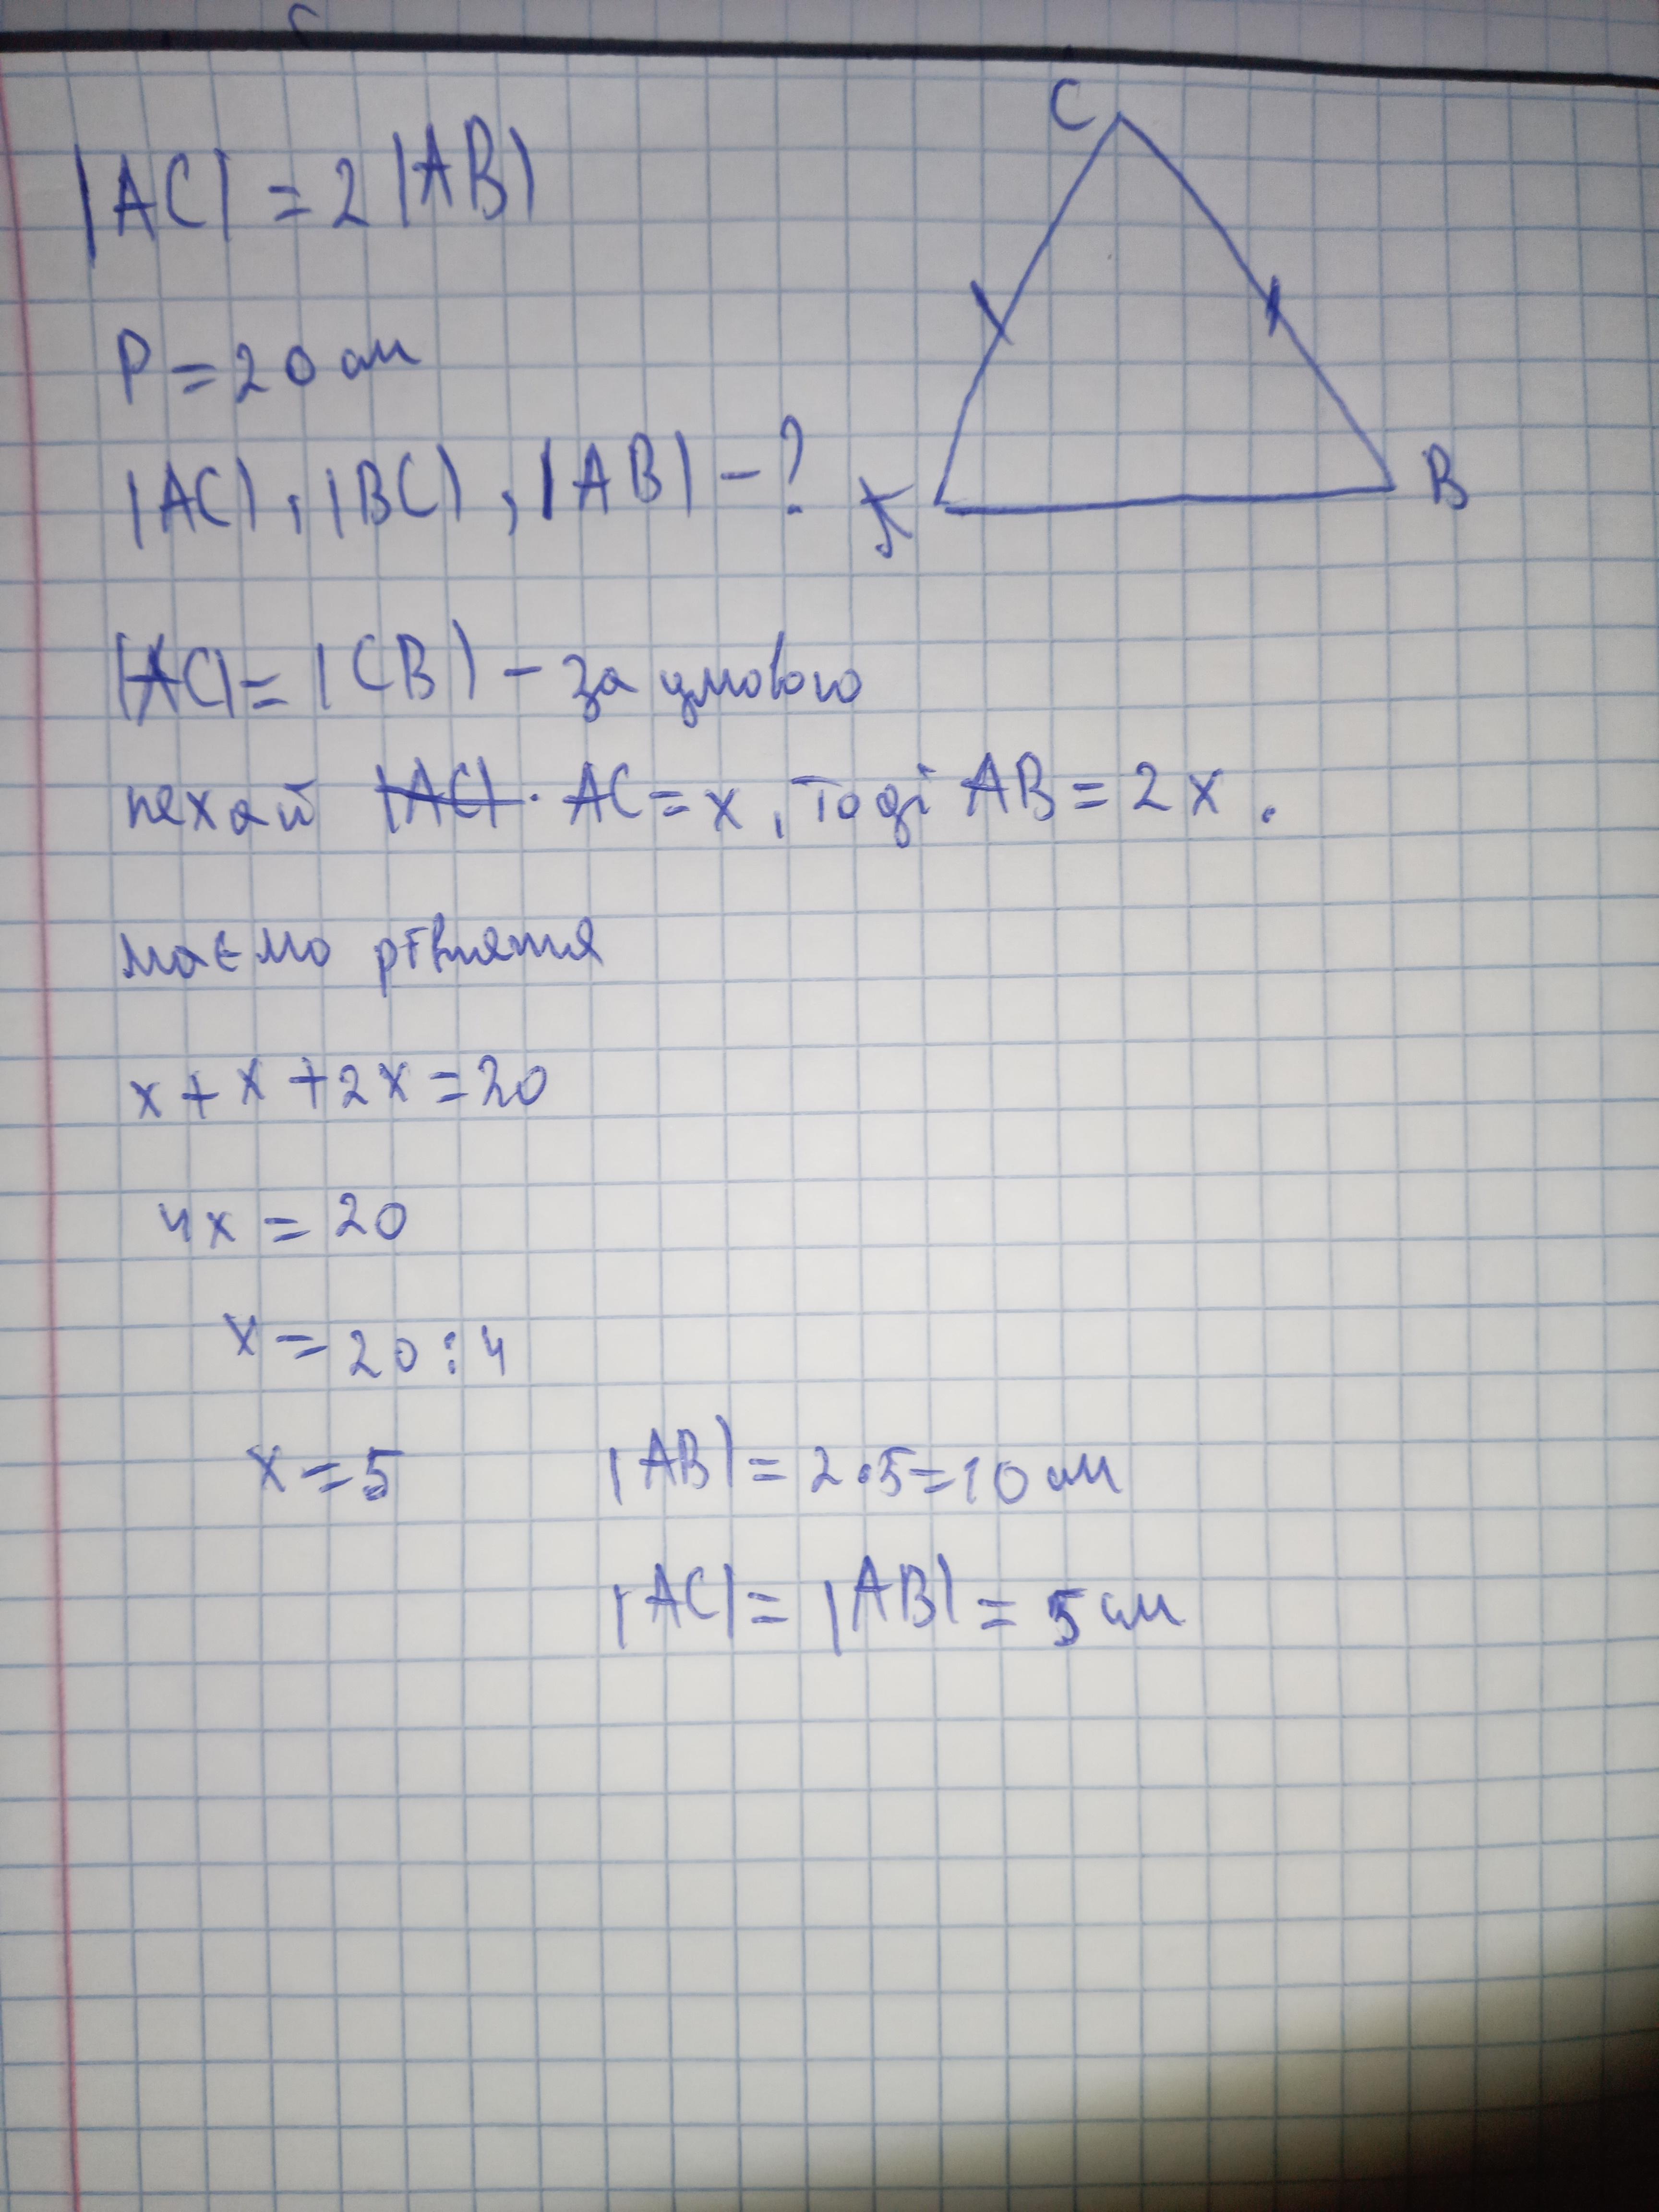 |AC| = 2|AB|
P = 20 см
|AC|, |BC|, |AB| - ?
C
A
B
|AC| = |CB| - за умовою
нехай |AC| . AC = x, тоді AB = 2x.
маємо рівняння
x + x + 2x = 20
4x = 20
x = 20 : 4
x = 5
|AB| = 2 · 5 = 10 см
|AC| = |AB| = 5 см